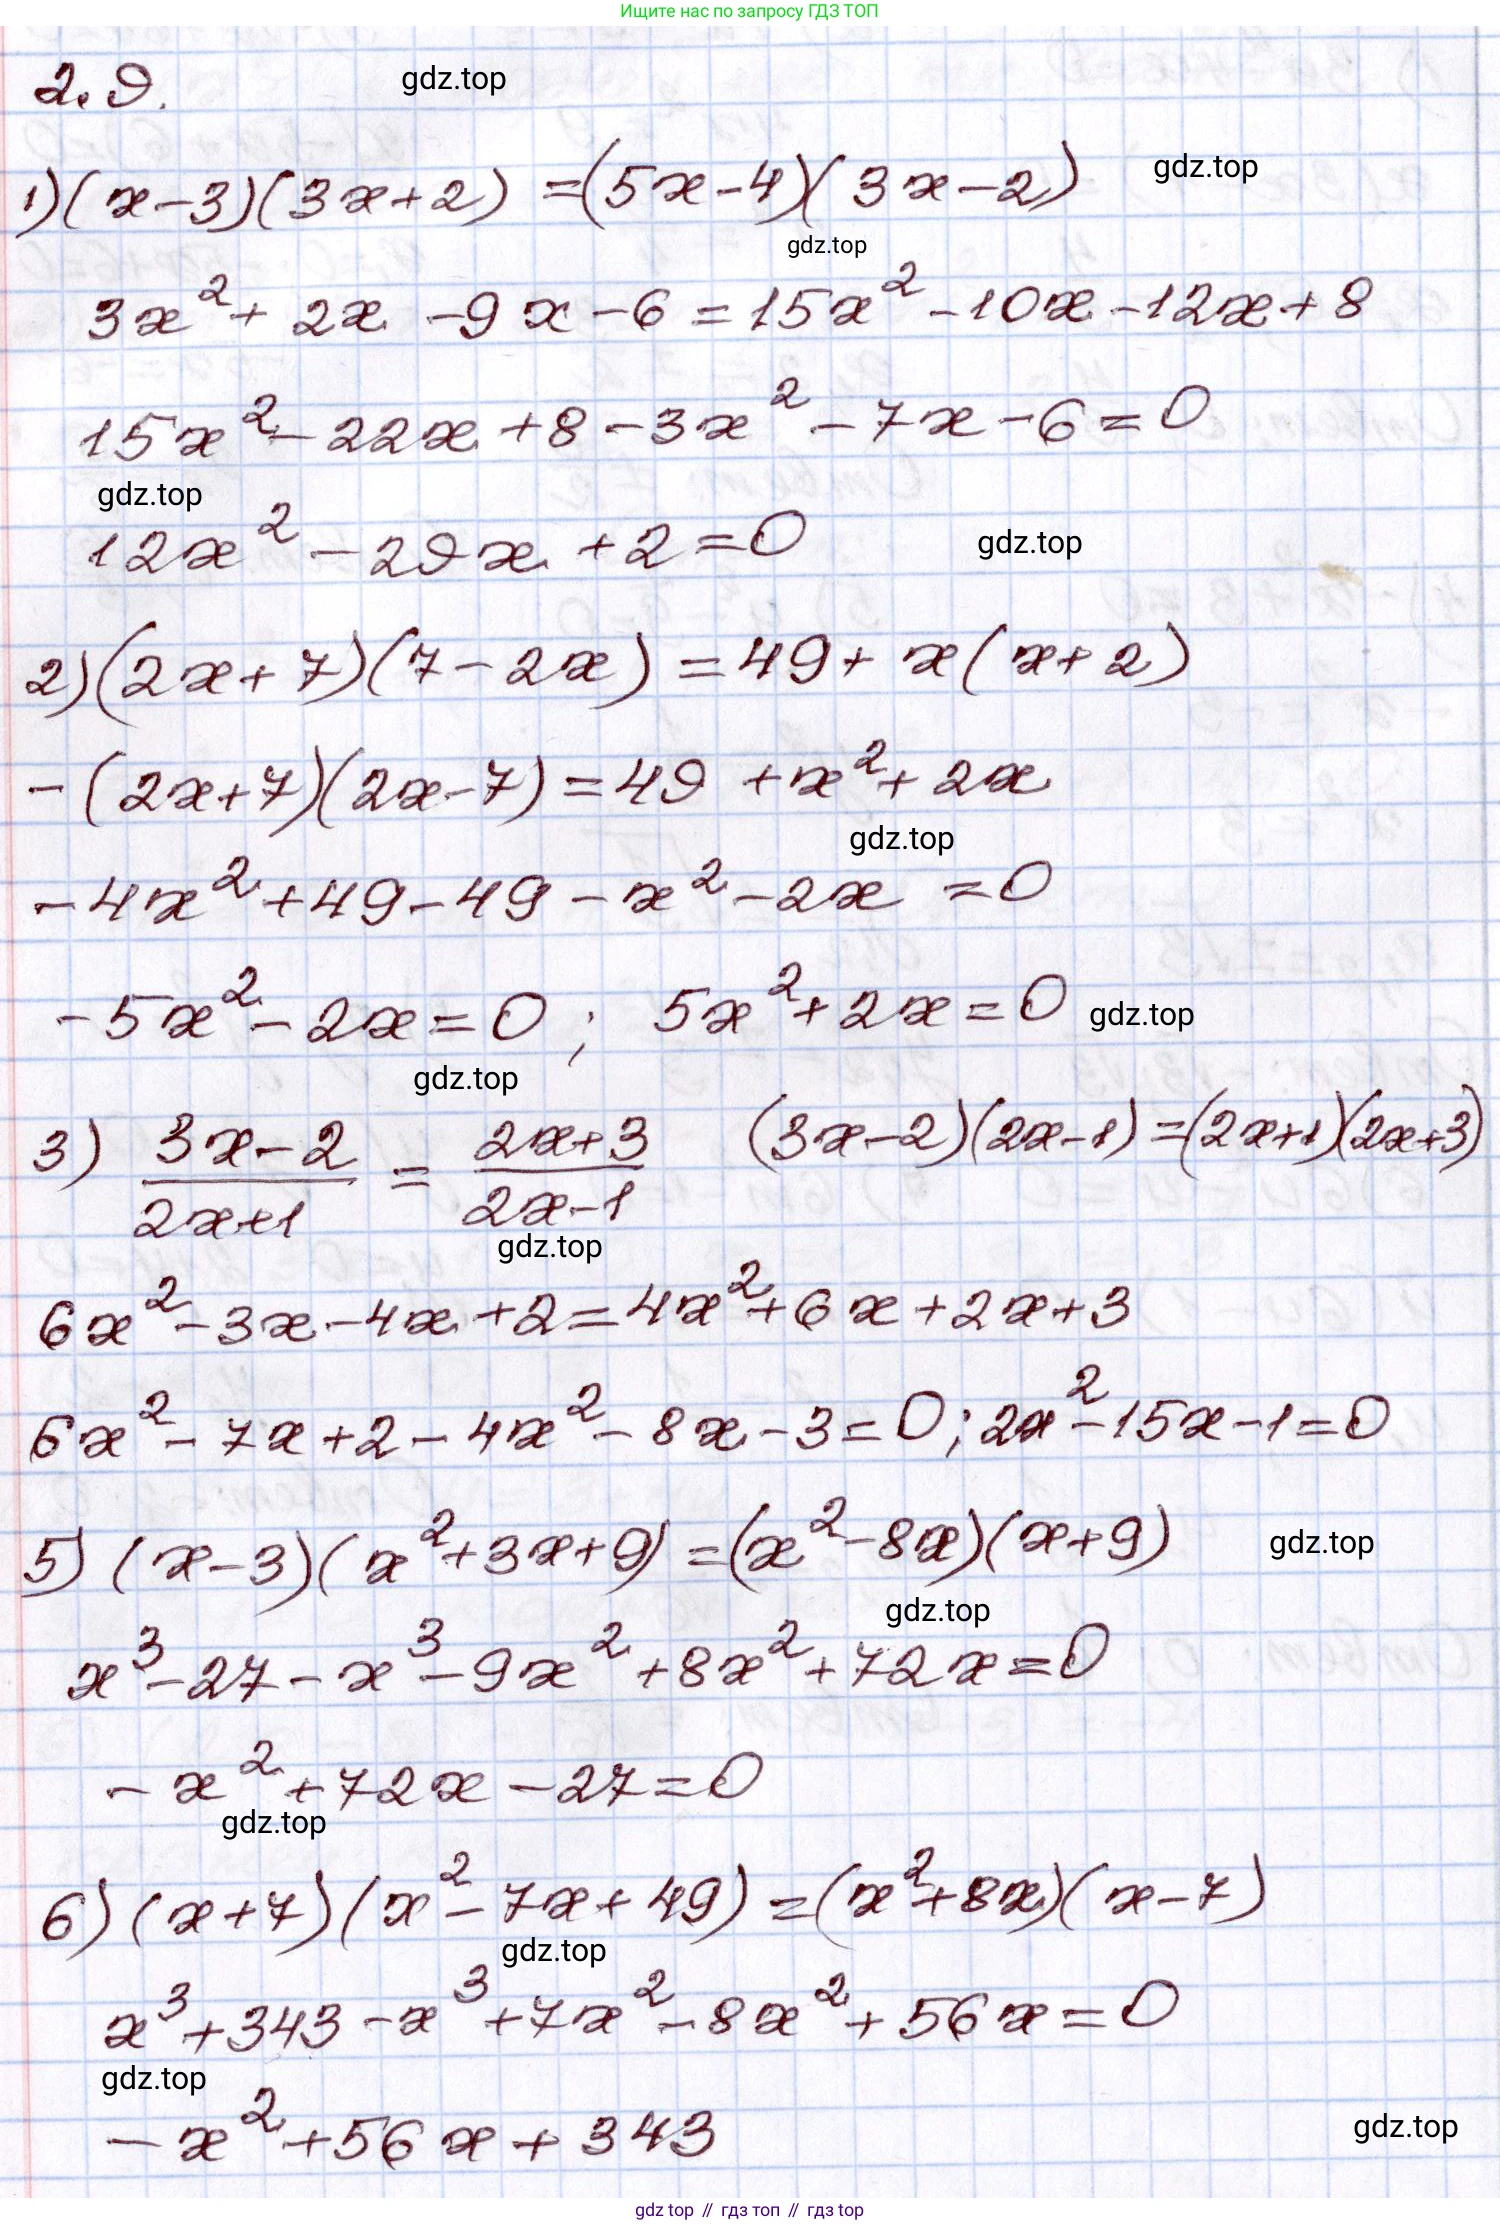 Ищите нас по запросу ГДЗ ТОП
2.9.
gdz.top
1) (x-3)(3x+2) = (5x-4)(3x-2)
gdz.top
gdz.top
3x² + 2x - 9x - 6 = 15x² - 10x - 12x + 8
15x² - 22x + 8 - 3x² - 7x - 6 = 0
gdz.top
12x² - 29x + 2 = 0
gdz.top
2) (2x+7)(7-2x) = 49 + x(x+2)
-(2x+7)(2x-7) = 49 + x² + 2x
gdz.top
-4x² + 49 - 49 - x² - 2x = 0
-5x² - 2x = 0 ; 5x² + 2x = 0
gdz.top
gdz.top
3) (3x-2)/(2x+1) = (2x+3)/(2x-1) (3x-2)(2x-1) = (2x+1)(2x+3)
gdz.top
6x² - 3x - 4x + 2 = 4x² + 6x + 2x + 3
6x² - 7x + 2 - 4x² - 8x - 3 = 0 ; 2x² - 15x - 1 = 0
5) (x-3)(x²+3x+9) = (x²-8x)(x+9)
gdz.top
gdz.top
x³ - 27 - x³ - 9x² + 8x² + 72x = 0
-x² + 72x - 27 = 0
gdz.top
6) (x+7)(x²-7x+49) = (x²+8x)(x-7)
gdz.top
x³ + 343 - x³ + 7x² - 8x² + 56x = 0
gdz.top
-x² + 56x + 343
gdz.top
gdz top // гдз топ // gdz top